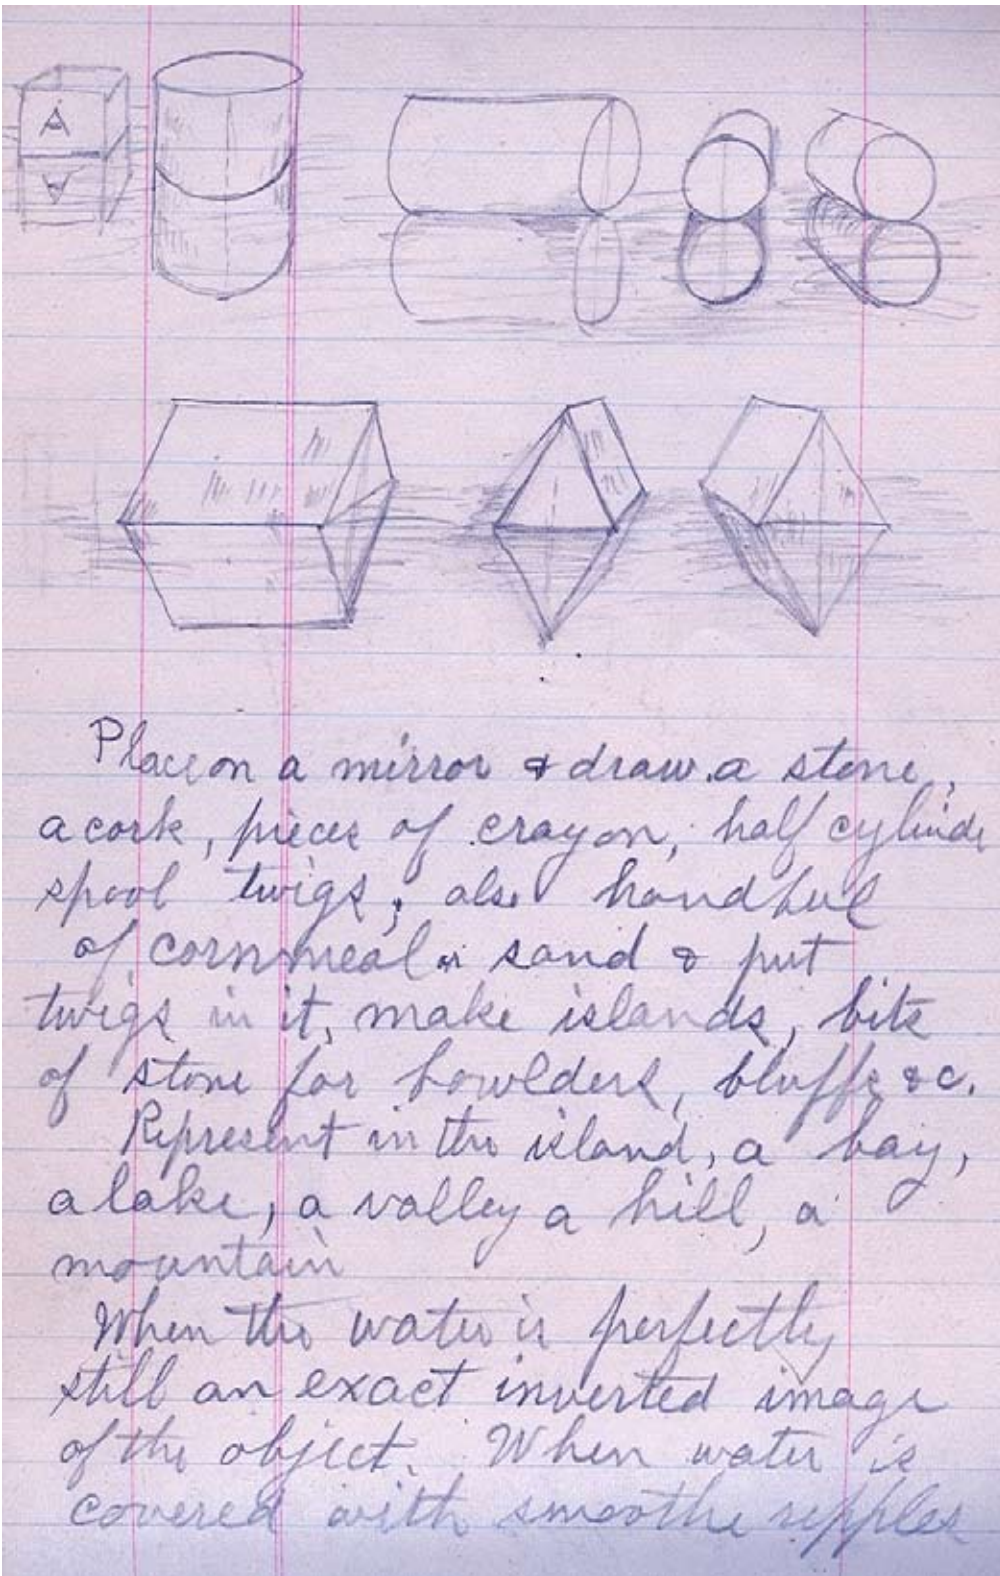 A
A
Place on a mirror & draw a stone,
a cork, pieces of crayon, half cylinde
spool twigs; also handful
of cornmeal or sand & put
twigs in it, make islands, bits
of stone for bowlders, bluffs &c.
Represent in the island, a bay,
a lake, a valley a hill, a
mountain
When the water is perfectly
still an exact inverted image
of the object. When water is
covered with smoothe ripples